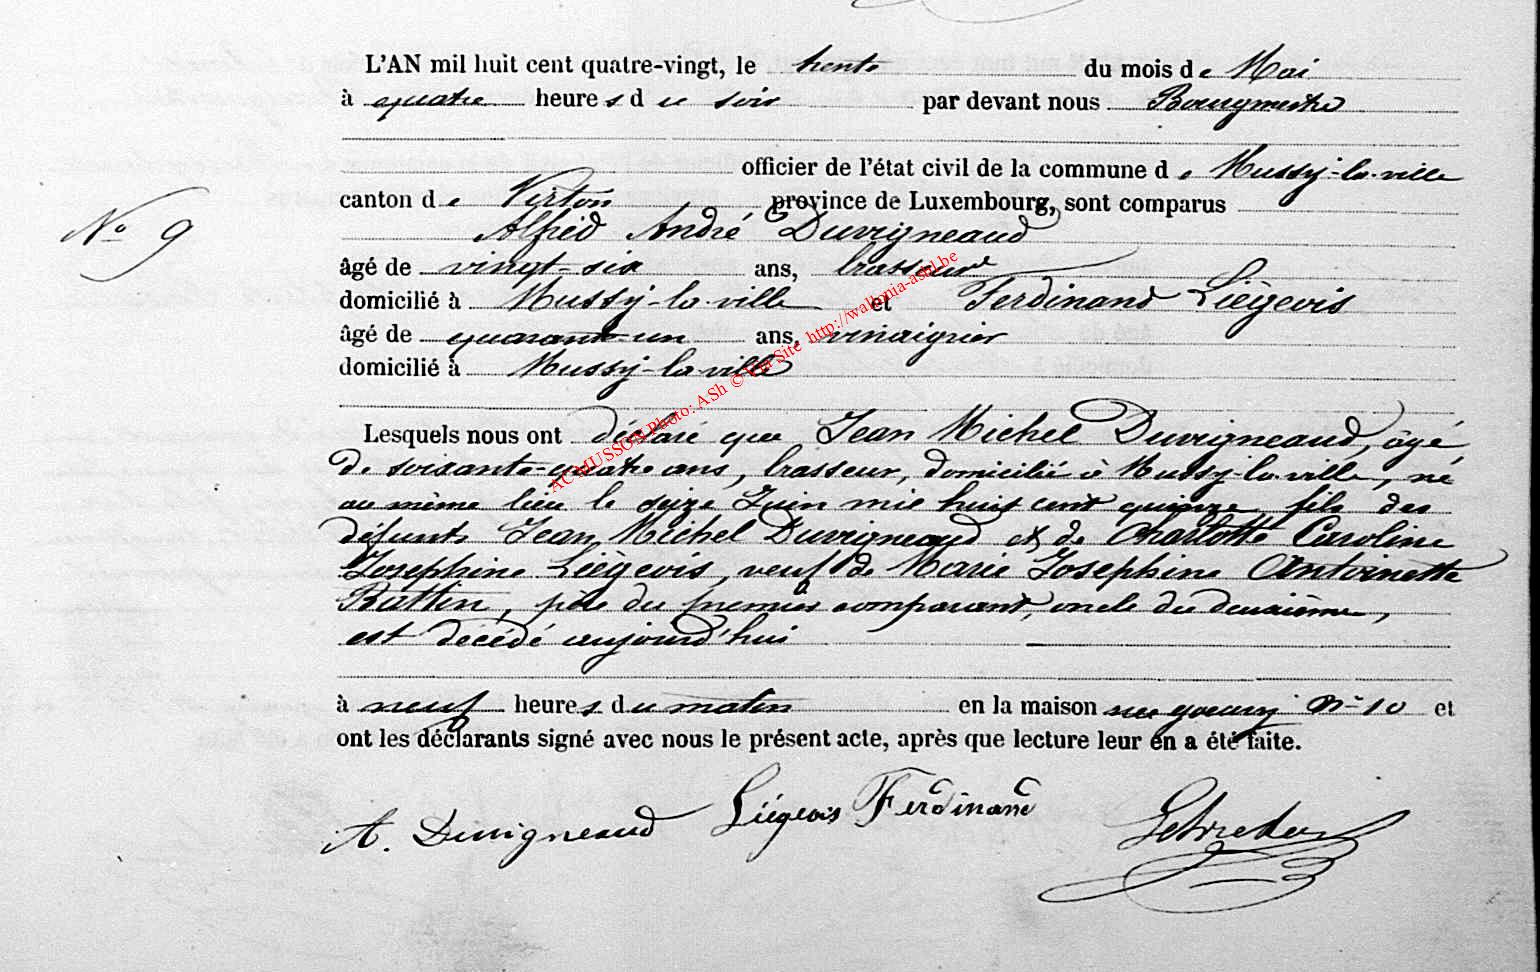 L'AN mil huit cent quatre-vingt, le trente du mois de Mai
à quatre heures du soir par devant nous Bourgmestre
officier de l'état civil de la commune de Mussy-la-ville
canton de Virton province de Luxembourg, sont comparus
N° 9
Alfred André Duvigneaud
âgé de vingt-six ans, brasseur
domicilié à Mussy-la-ville et Ferdinand Liégeois
âgé de quarante-un ans, vinaigrier
domicilié à Mussy-la-ville
AC MUSSON Photo: ASh © Ver Site http://wallonia-asbl.be
Lesquels nous ont déclaré que Jean Michel Duvigneaud, âgé
de soixante-quatre ans, brasseur, domicilié à Mussy-la-ville, né
au même lieu le seize Juin mil huit cent quinze, fils des
défunts Jean Michel Duvigneaud et de Charlotte Caroline
Josephine Liégeois, veuf de Marie Josephine Antoinette
père du premier comparant, oncle du deuxième,
est décédé aujourd'hui
à neuf heures du matin en la maison N° 10 et
ont les déclarants signé avec nous le présent acte, après que lecture leur en a été faite.
A. Duvigneaud Liégeois Ferdinand